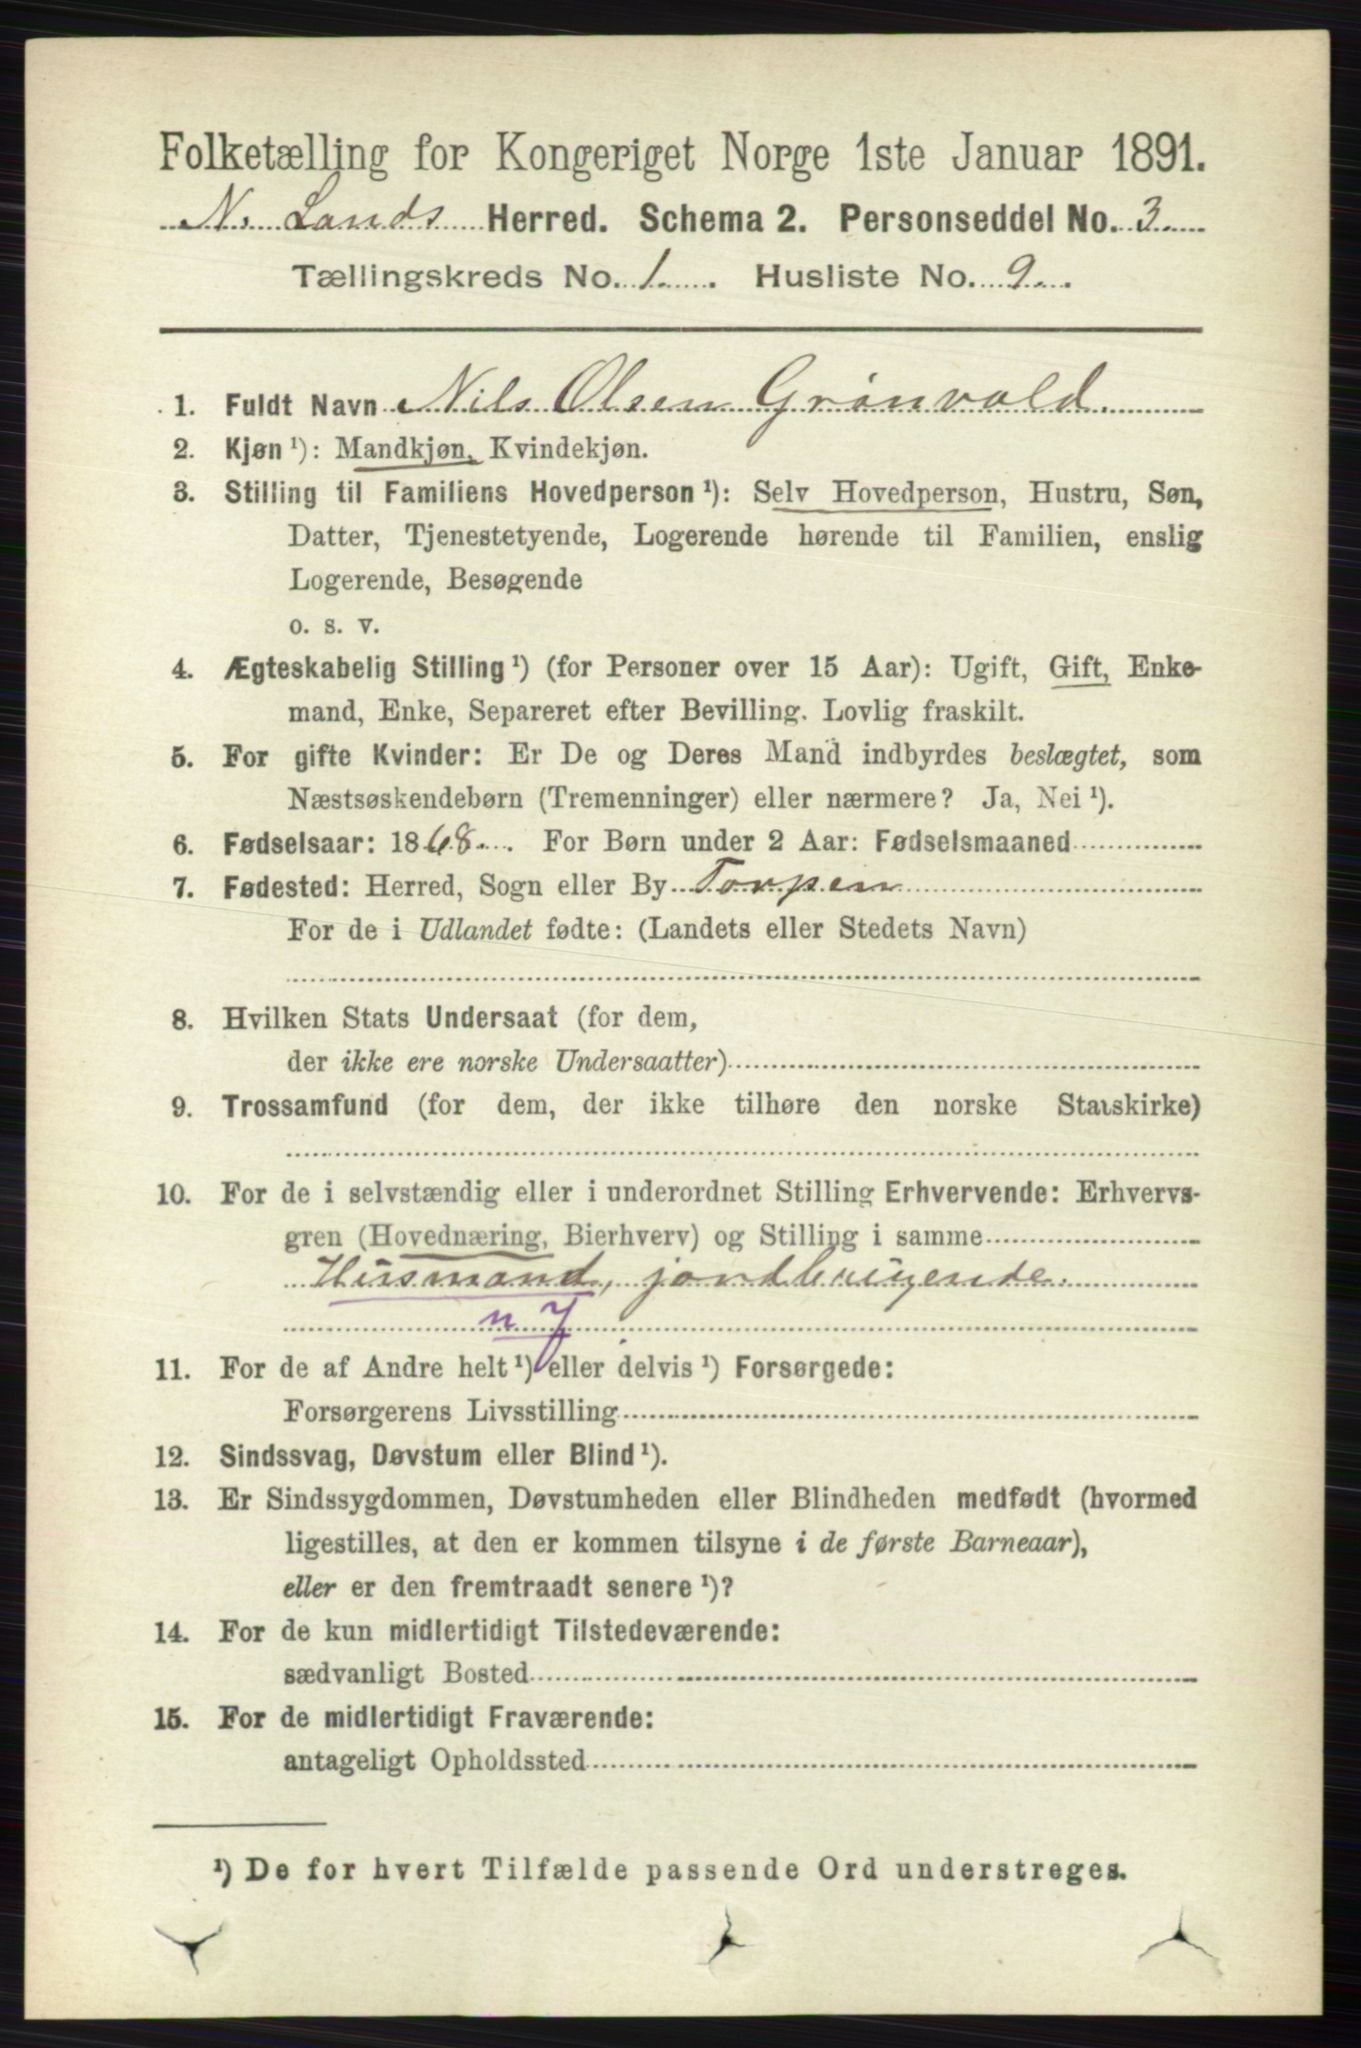 Folketælling for Kongeriget Norge 1ste Januar 1891.
N. Lands Herred. Schema 2. Personseddel No. 3.
Tællingskreds No. 1. Husliste No. 9.
1. Fuldt Navn Nils Olsen Grønvold.
2. Kjøn ¹): Mandkjøn, Kvindekjøn.
3. Stilling til Familiens Hovedperson ¹): Selv Hovedperson, Hustru, Søn,
Datter, Tjenestetyende, Logerende hørende til Familien, enslig
Logerende, Besøgende
o. s. v.
4. Ægteskabelig Stilling ¹) (for Personer over 15 Aar): Ugift, Gift, Enke-
mand, Enke, Separeret efter Bevilling. Lovlig fraskilt.
5. For gifte Kvinder: Er De og Deres Mand indbyrdes beslægtet, som
Næstsøskendebørn (Tremenninger) eller nærmere? Ja, Nei ¹).
6. Fødselsaar: 1868. For Børn under 2 Aar: Fødselsmaaned
7. Fødested: Herred, Sogn eller By Torpen
For de i Udlandet fødte: (Landets eller Stedets Navn)
8. Hvilken Stats Undersaat (for dem,
der ikke ere norske Undersaatter)
9. Trossamfund (for dem, der ikke tilhøre den norske Statskirke)
10. For de i selvstændig eller i underordnet Stilling Erhvervende: Erhvervs-
gren (Hovednæring, Bierhverv) og Stilling i samme
Husmand, jordbrugende.
n 7
11. For de af Andre helt ¹) eller delvis ¹) Forsørgede:
Forsørgerens Livsstilling
12. Sindssvag, Døvstum eller Blind ¹).
13. Er Sindssygdommen, Døvstumheden eller Blindheden medfødt (hvormed
ligestilles, at den er kommen tilsyne i de første Barneaar),
eller er den fremtraadt senere ¹)?
14. For de kun midlertidigt Tilstedeværende:
sædvanligt Bosted
15. For de midlertidigt Fraværende:
antageligt Opholdssted
¹) De for hvert Tilfælde passende Ord understreges.